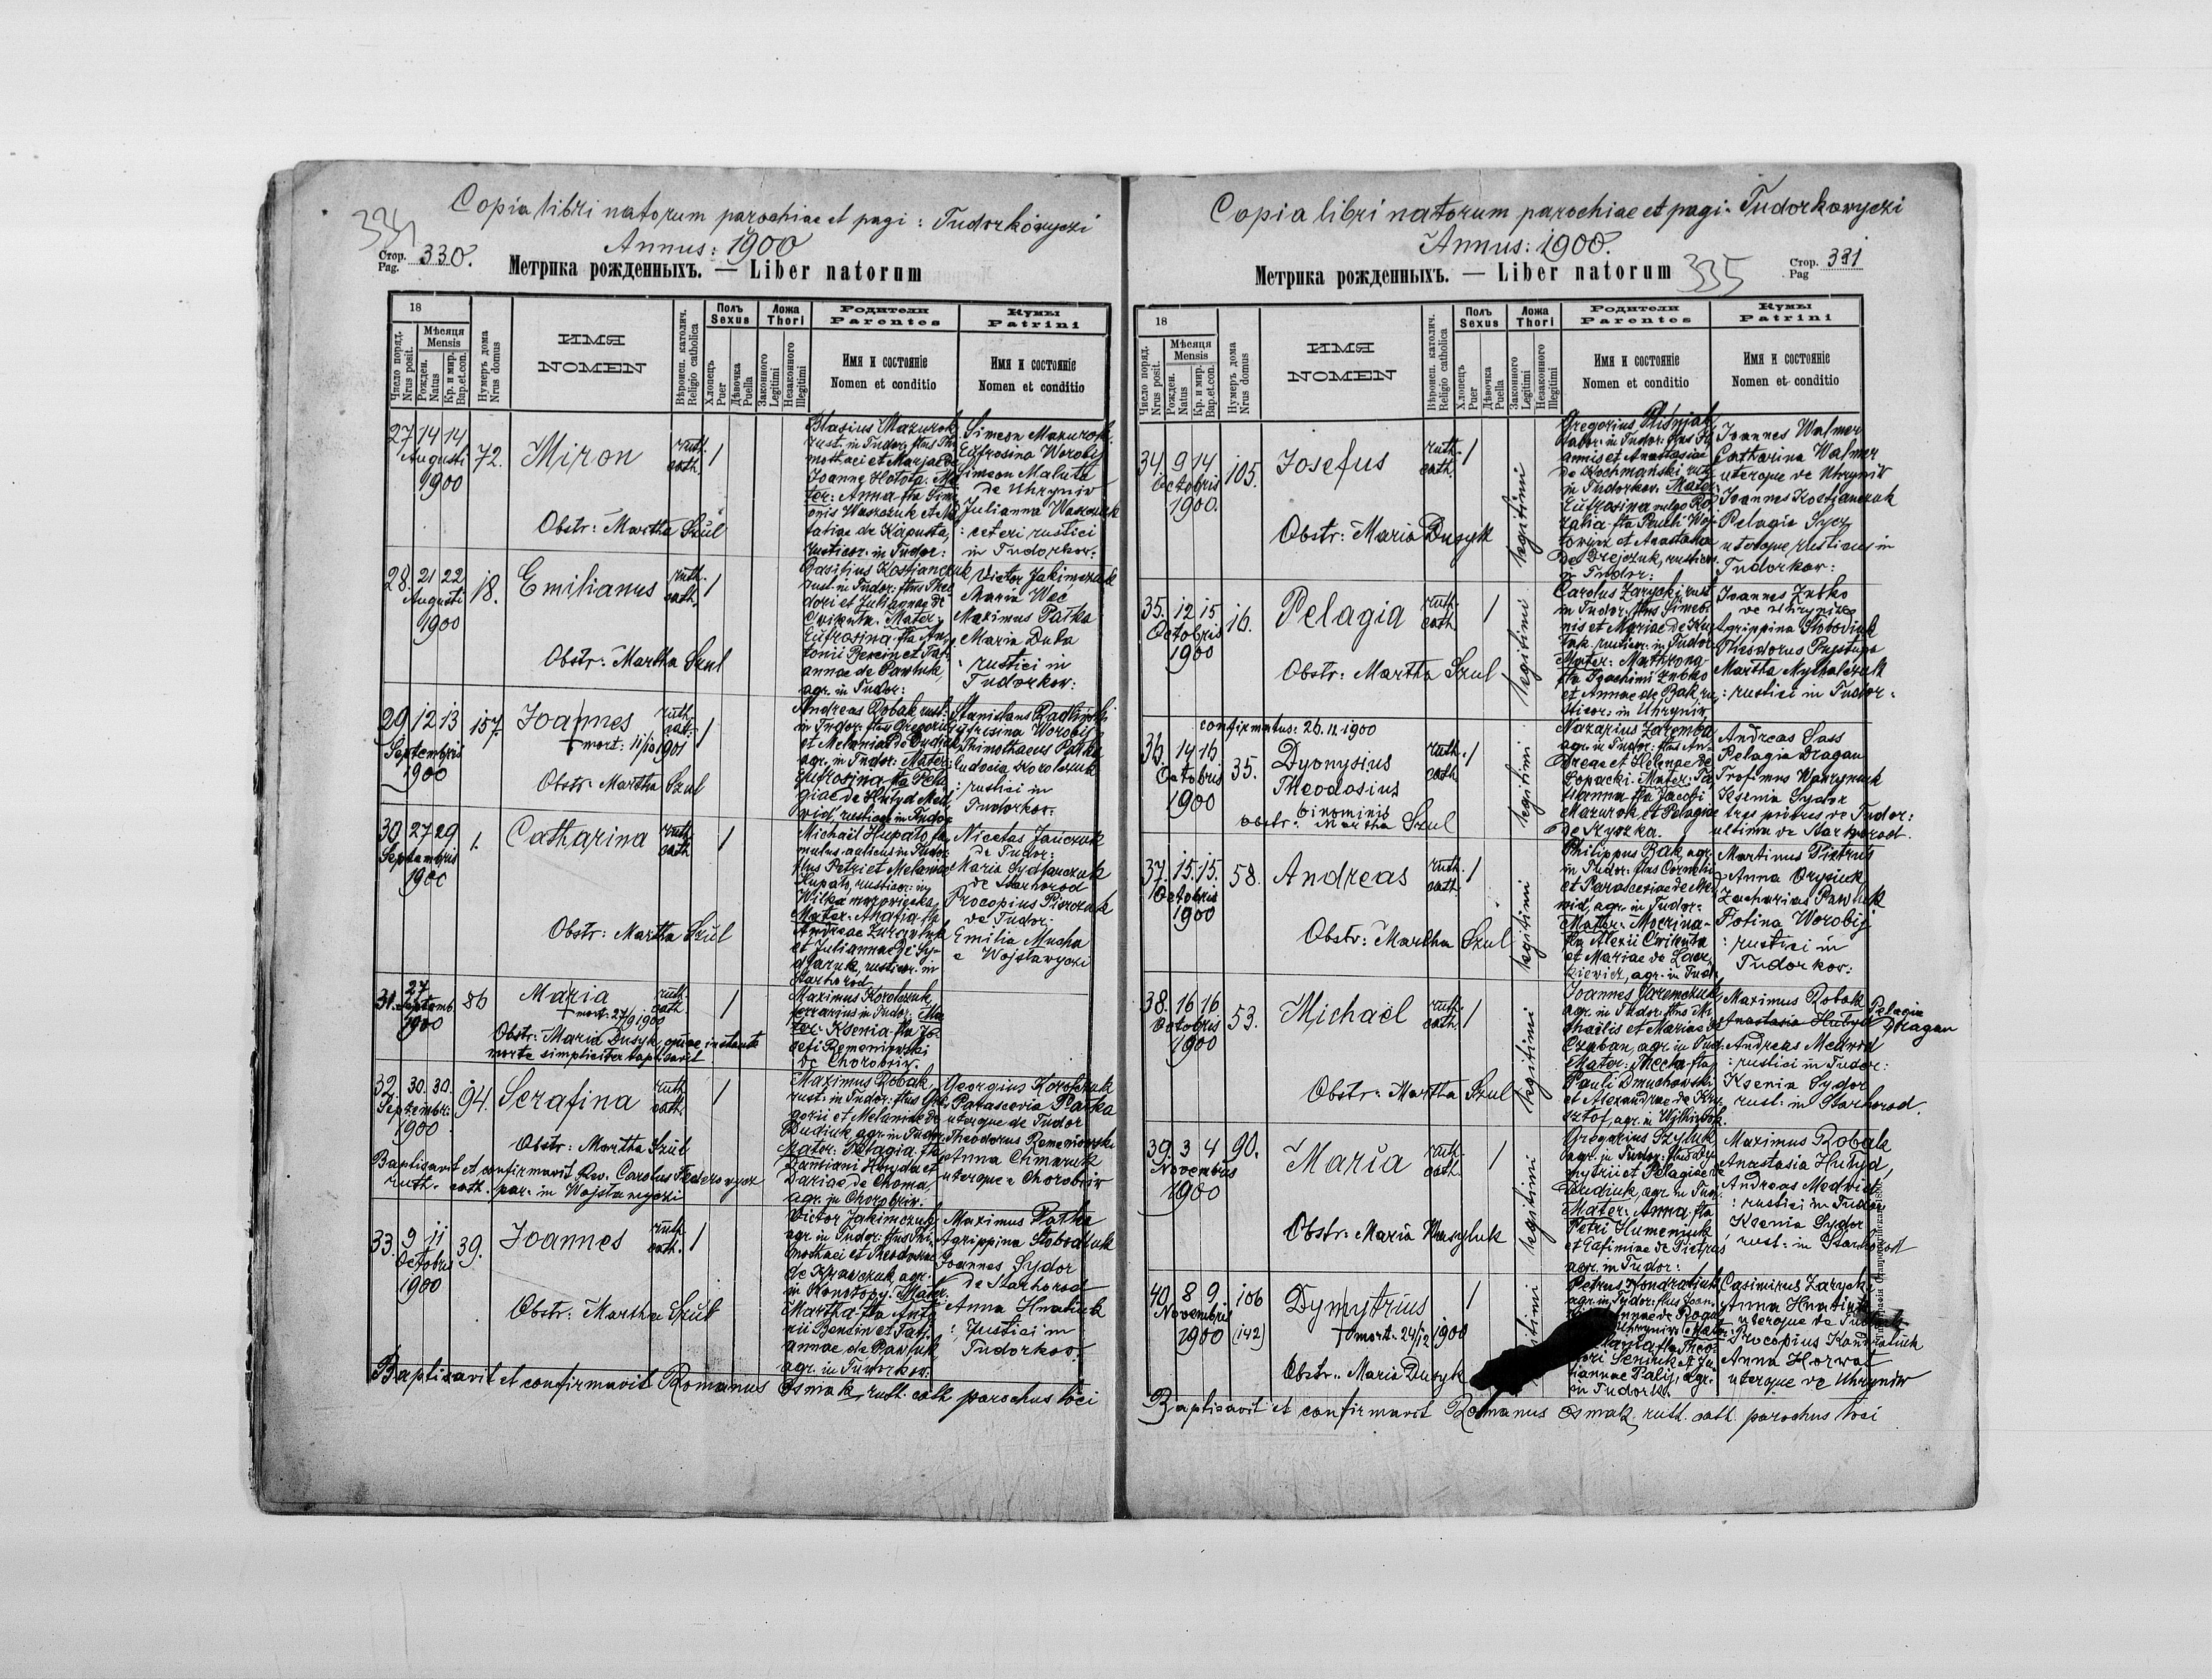 Copia libri natorum parochiae et pagi: Tudorkowyczi
Annus: 1900
334
Стор. Pag. 330.
Метрика рожденныхъ. — Liber natorum
18
Число поряд. Nrus posit.
Мѣсяця Mensis
Рожден. Natus
Кр. и мир. Bap. et con.
Нумеръ дома Nrus domus
ИМЯ
NOMEN
Вѣроисп. католич. Religio catholica
Полъ Sexus
Хлопець Puer
Дѣвочка Puella
Ложа Thori
Законного Legitimi
Незаконного Illegitimi
Родители
Parentes
Имя и состояніе
Nomen et conditio
Кумы
Patrini
Имя и состояніе
Nomen et conditio
27 14 14 Augusti 1900
72.
Miron
ruth. cath.
1
Obstr: Martha Szul
Blasius Mazurok
rust. in Tudor: flius Thi-
mothaei et Mariae de
Joanne Hotota. Ma-
ter: Anna fla Sime-
onis Waszczuk et Na-
taliae de Kapusta,
rusticor: in Tudor:
Simeon Mazurok
Eufrosina Worobij
Simeon Maluta
de Uhryniw
Julianna Waszczuk
: ceteri rustici
in Tudorkow:
28. 21 22 Augusti 1900
18.
Emilianus
ruth. cath.
1
Obstr: Martha Szul
Basilius Kostjanczuk
rust. in Tudor: flius Theo-
dori et Juliannae de
Cwikuta. Mater:
Eufrosina fla An-
tonii Bencin et Tat-
annae de Pawluk,
agr. in Tudor:
Victor Jakimczuk
Maria Wec
Maximus Patka
Maria Duba
: rustici in
Tudorkow:
29 12 13 Septembris 1900
157.
Joannes
† mort: 11/10 1901
ruth. cath.
1
Obstr: Martha Szul
Andreas Robak rust:
in Tudor: flius Gregorii
et Melaniae de Dudiuk
agr. in Tudor: Mater:
Eufrosina fla Pela-
giae de Hutyd Med-
wid, rusticae in Tudor
Stanislaus Radliński
Eufrosina Worobij
Thimothaeus Patka
Eudocia Korolczuk
: rustici in
Tudorkow:
30. 27 29 Septembris 1900
1.
Catharina
ruth. cath.
1
Obstr: Martha Szul
Michaël Hupato, fa-
mulus aulicus in Tudor:
flius Petri et Melaniae
Hupato, rusticor: in
Wilka mazowiecka
Mater: Ahafia fla
Andreae Zurawluk
et Juliannae de Sy-
djaruk, rusticor: in
Starhorod
Nicetas Janczuk
de Tudor:
Maria Sydjanczuk
de Starhorod
Procopius Pisrozuk
de Tudor:
Emilia Mucha
e Wojstawyczi
31. 27 Septemb. 1900
86
Maria
† mort: 27/9 1900
ruth. cath.
1
Obstr: Maria Dusyk, quae instante
morte simpliciter baptisavit
Maximus Korolczuk,
ferrarius in Tudor: Ma-
ter: Ksenia fla Jo-
sefi Remeniowski
de Chorobrow.
32. 30. 30. Septembr: 1900
94.
Serafina
ruth. cath.
1
Obstr: Martha Szul
Baptisavit et confirmavit Rev. Carolus Fedorowycz
ruth. cath. par. in Wojstawyczi
Maximus Robak,
rust: in Tudor: flius Gre-
gorii et Melaniae de
Dudiuk, agr. in Tudor:
Mater: Pelagia fla
Damiani Hnyda et
Dariae de Choma,
agr. in Chorobrow:
Georgius Korolczuk
Parascevia Patka
uterque de Tudor
Theodorus Remeniowski
Anna Chmaruk
uterque e Chorobriw
33. 9 11 Octobris 1900
39.
Joannes
ruth. cath.
1
Obstr: Martha Szul
Victor Jakimczuk,
agr. in Tudor: flius Thi-
mothaei et Theodorae
de Krawczuk, agr.
in Konotopy. Mater:
Martha fla Anto-
nii Bencin et Tat-
annae de Pawluk,
agr. in Tudorkow:
Maximus Patka
Agrippina Stobodiuk
Joannes Sydor
de Starhorod
Anna Hnatiuk
: rustici in
Tudorkow:
Baptisavit et confirmavit Romanus Osmak, ruth. cath. parochus loci
Copia libri natorum parochiae et pagi: Tudorkowyczi
Annus: 1900.
Метрика рожденныхъ. — Liber natorum
335
Стор. Pag 331
18
Число поряд. Nrus posit.
Мѣсяця Mensis
Рожден. Natus
Кр. и мир. Bap. et con.
Нумеръ дома Nrus domus
ИМЯ
NOMEN
Вѣроисп. католич. Religio catholica
Полъ Sexus
Хлопець Puer
Дѣвочка Puella
Ложа Thori
Законного Legitimi
Незаконного Illegitimi
Родители
Parentes
Имя и состояніе
Nomen et conditio
Кумы
Patrini
Имя и состояніе
Nomen et conditio
34. 9 14 Octobris 1900.
105.
Josefus
ruth. cath.
1
legitimi
Obstr: Maria Dusyk
Gregorius Pliśnjak,
labor: in Tudor: flius Jo-
annis et Anastasiae
de Kochmański rust.
in Tudorkow. Mater:
Eufrosina vulgo Ro-
zalia fla Pauli Woj-
towicz et Anastasiae
de Drejczuk, rusticor:
in Tudor:
Joannes Walmer
Catharina Walmer
uterque de Uhryniw
Joannes Kostjanczuk
Pelagia Sycz
uterque rusticus in
Tudorkow:
35. 12 15 Octobris 1900
16.
Pelagia
ruth. cath.
1
legitimi
Obstr: Martha Szul
Carolus Zarycki, rust
in Tudor: flius Simeo-
nis et Mariae de Kus-
tuk rusticor: in Tudor:
Mater: Mathrona
fla Joachimi Zubko
et Annae de Bak, ru-
sticor: in Uhryniw
Joannes Zubko
de Uhryniw
Agrippina Stobodiuk
Theodorus Prystupa
Martha Mychalczuk
: rustici in Tudor:
confirmatus: 26.11.1900
36. 14 16 Octobris 1900
35.
Dyonysius
Theodosius
binominis
ruth. cath.
1
legitimi
obstr: Martha Szul
Nazarius Zaremba,
agr. in Tudor: flius An-
dreae et Helenae de
Lopacki. Mater: Ju-
lianna fla Jacobi
Mazurok et Pelagiae
de Hryszka.
Andreas Sass
Pelagia Dragan
Trofimus Wawrynuk
Ksenia Sydor
tres priores de Tudor:
ultima de Starhorod.
37. 15. 15. Octobris 1900
58.
Andreas
ruth. cath.
1
legitimi
Obstr: Martha Szul
Philippus Bak, agr.
in Tudor: flius Cornelii
et Parasceviae de Me-
wid, agr. in Tudor:
Mater: Mocrina
fla Alexii Cwikuta
et Mariae de Laz-
kiewicz, agr. in Tudor:
Martinus Pietrus
Anna Orysiuk
Zacharias Pawluk
Fotina Worobij
: rustici in
Tudorkow:
38. 16 16 Octobris 1900
53.
Michaël
ruth. cath.
1
legitimi
Obstr: Martha Szul
Joannes Jaremczuk,
agr. in Tudor: flius Mi-
chaëlis et Mariae de
Czaban, agr. in Tud:
Mater: Thecla fla
Pauli Dmuchowski
et Alexandrae de Kry-
sztof, agr. in Wilhinok.
Maximus Robak
Anastasia Hutyd Pelagia Dragan
Andreas Medwid
: rustici in Tudor:
Ksenia Sydor
rust: in Starhorod.
39. 3 4 Novembris 1900
90.
Maria
ruth. cath.
1
legitimi
Obstr: Maria Wasyluk
Gregorius Szyluk,
agr. in Tudor: flius Dy-
mytrii et Pelagiae de
Dudiuk, agr. in Tud:
Mater: Anna fla
Petri Humeniuk
et Eafimiae de Pietrus
agr. in Tudor:
Maximus Robak
Anastasia Hutyd,
Andreas Medwid
: rustici in Tudor
Ksenia Sydor
rust: in Starhorod
40. 8 9 Novembris 1900
106
(142)
Dymytrius
† mort: 24/12 1900
1
Obstr: Maria Dusyk
Petrus Kondratiuk
agr. in Tudor: flius Joan-
Uhryniw. Mater:
Maria fla Theo-
dori Seniuk et Ju-
liannae Palij, agr.
in Tudork.
Casimirus Zarycki
Anna Hnatiuk
uterque de Tudork
Procopius Kondratiuk
Anna Horwat
uterque de Uhryniw
Baptisavit et confirmavit Romanus Osmak, ruth. cath. parochus loci